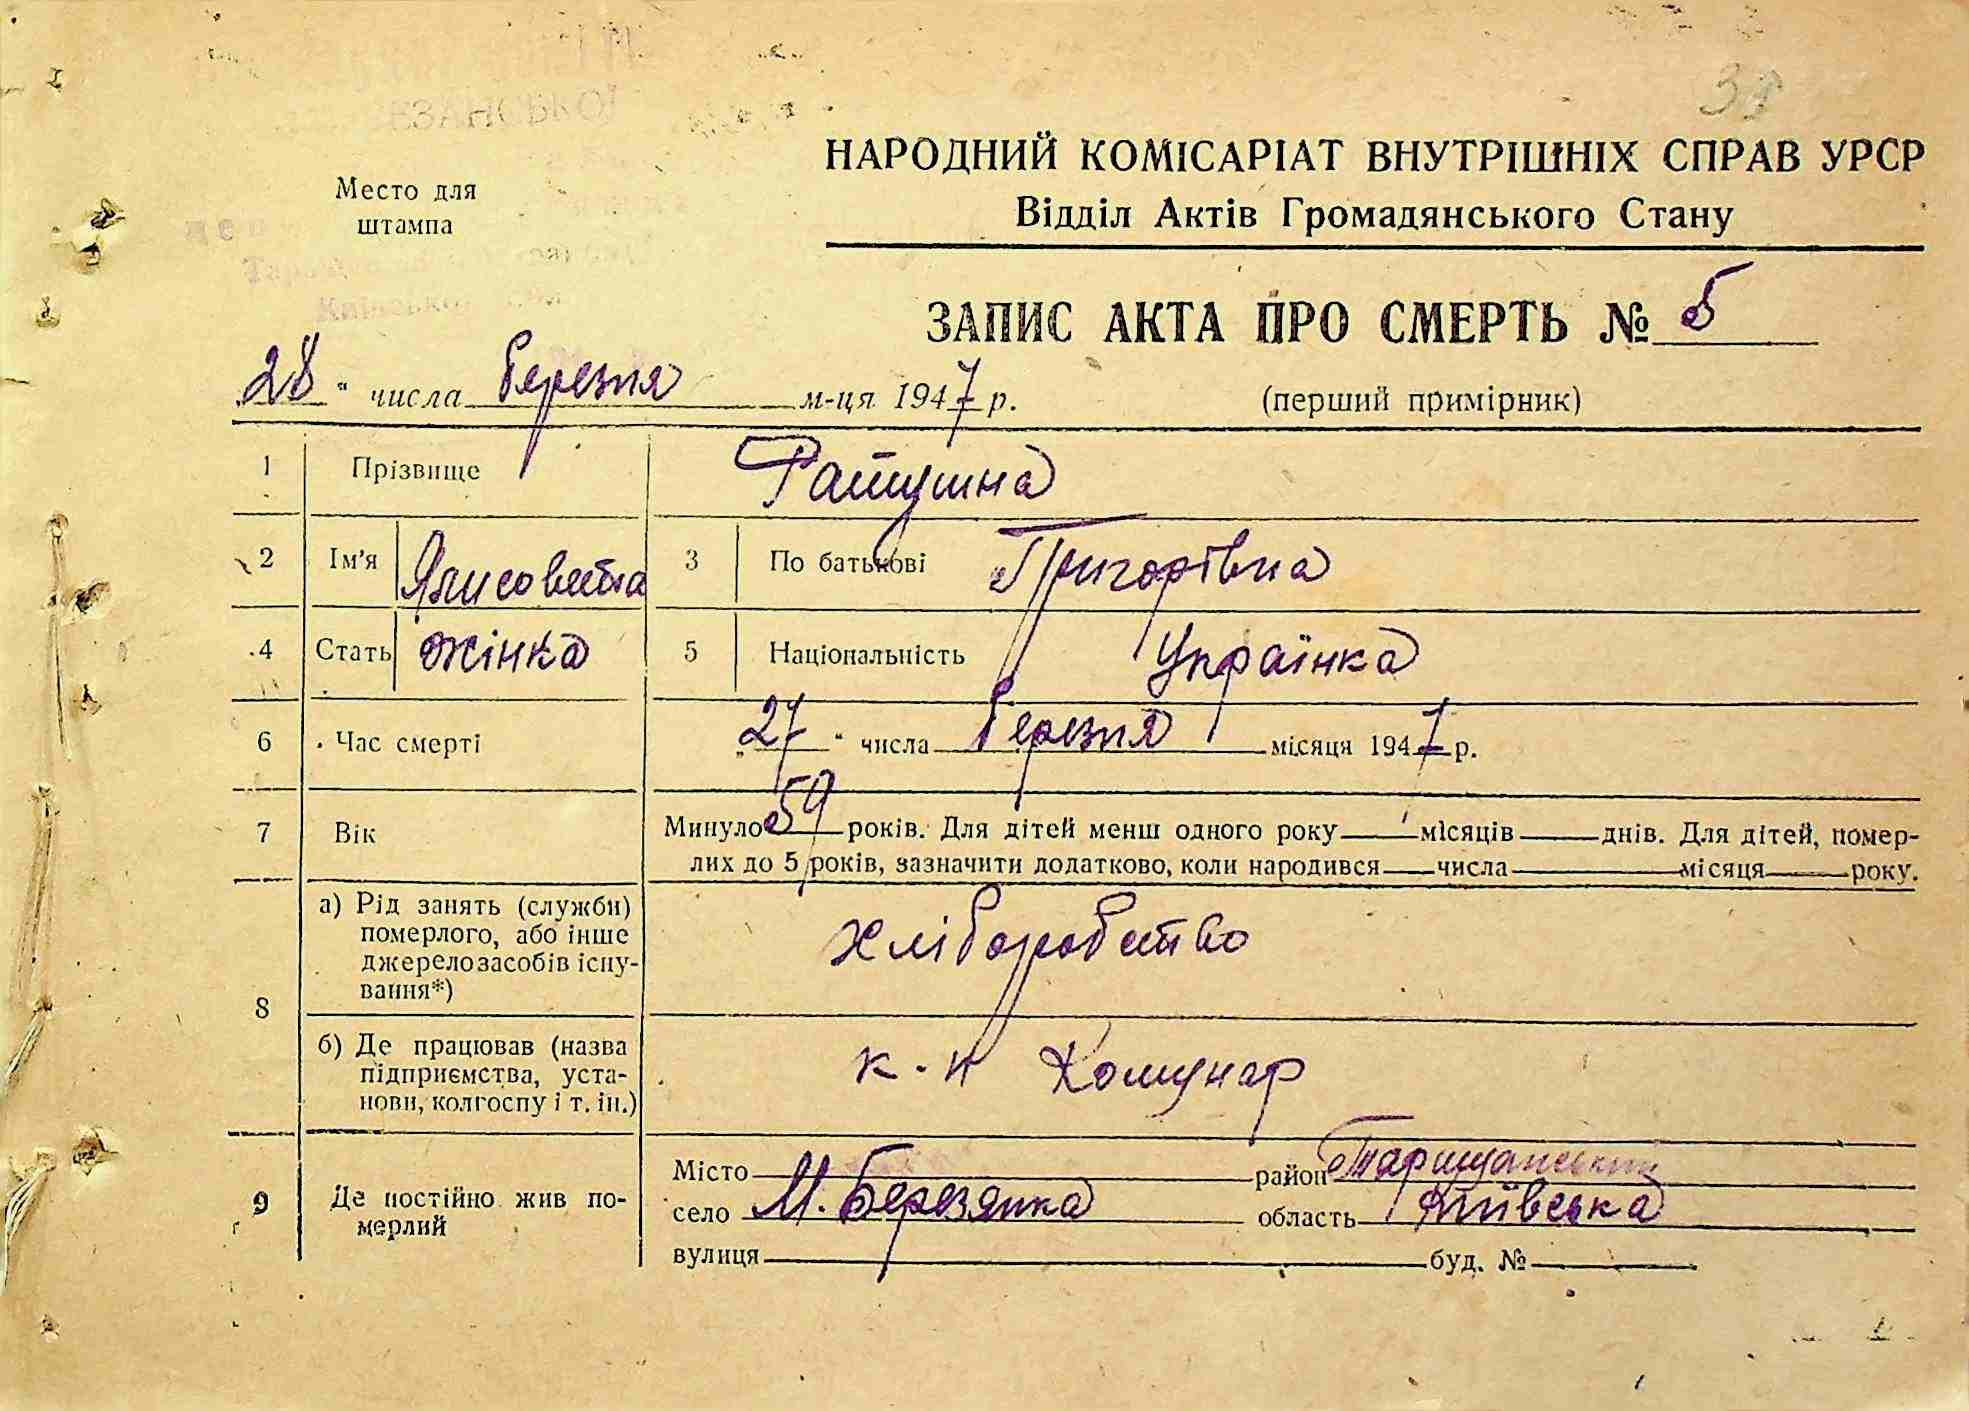 38
НАРОДНИЙ КОМІСАРІАТ ВНУТРІШНІХ СПРАВ УРСР
Відділ Актів Громадянського Стану
Место для
штампа
ЗАПИС АКТА ПРО СМЕРТЬ № 5
28 " числа березня м-ця 1947 р.
(перший примірник)
1 Прізвище Ратушна
2 Ім'я Ялисовета 3 По батькові Григорівна
4 Стать жінка 5 Національність Українка
6 Час смерті „27" числа березня місяця 1947 р.
7 Вік Минуло 59 років. Для дітей менш одного року місяців днів. Для дітей, помер-
лих до 5 років, зазначити додатково, коли народився числа місяця року.
8 а) Рід занять (служби)
померлого, або інше
джерело засобів існу-
вання*)
хліборобство
б) Де працював (назва
підприємства, уста-
нови, колгоспу і т. ін.)
к-п Комунар
9 Де постійно жив по-
мерлий
Місто район Таращанський
село М. Березянка область Київська
вулиця буд. №